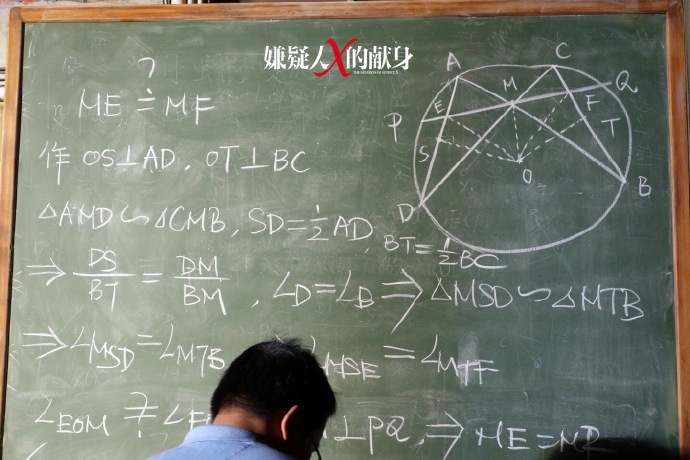 嫌疑人X的献身
THE DEVOTION OF SUSPECT X
?
ME = MF
作 OS⊥AD, OT⊥BC
△AMD∽△CMB, SD=½AD, BT=½BC
⇒ DS/BT = DM/BM, ∠D=∠B ⇒ △MSD∽△MTB
⇒ ∠MSD=∠MTB ∠MSE=∠MTF
∠EOM ?= ∠F
⊥PQ, ⇒ ME=MF
A
C
M
Q
P
E
F
T
S
O
D
B